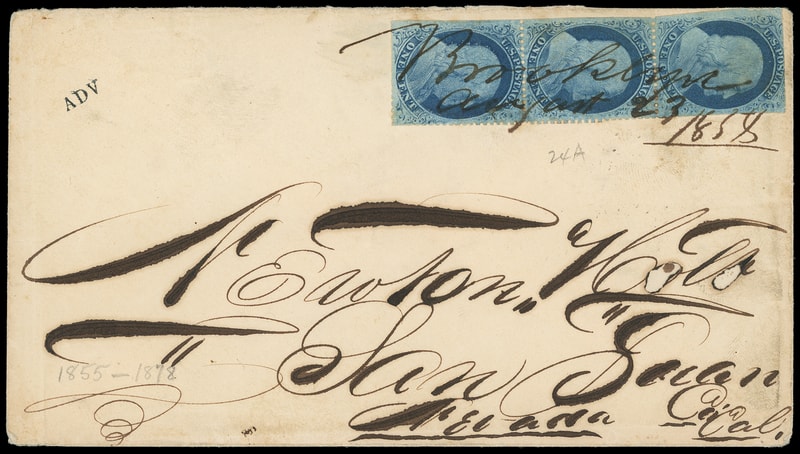 U.S. POSTAGE ONE CENT
U.S. POSTAGE ONE CENT
U.S. POSTAGE
ADV
Brooklyn
August 23
1858
24A
Newton,, Holt
"San "Juan
Nevada Co,, Cal.
1855 – 1878